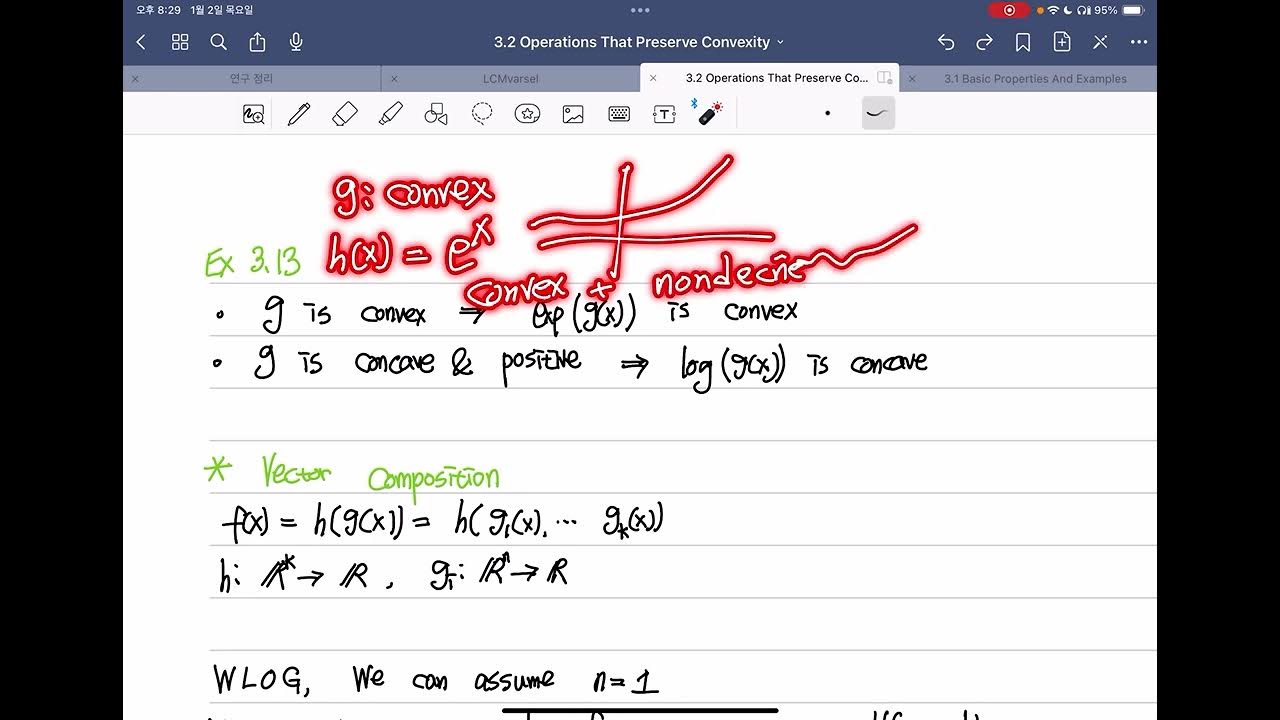 오후 8:29 1월 2일 목요일
95%
3.2 Operations That Preserve Convexity
연구 정리
LCMvarsel
3.2 Operations That Preserve Co...
3.1 Basic Properties And Examples
g: convex
h(x) = e^x
Ex 3.13
convex + nondecre
• g is convex ⇒ exp(g(x)) is convex
• g is concave & positive ⇒ log(g(x)) is concave
* Vector Composition
f(x) = h(g(x)) = h(g₁(x), ... gₖ(x))
h: ℝᵏ → ℝ, gᵢ: ℝⁿ → ℝ
WLOG, We can assume n=1